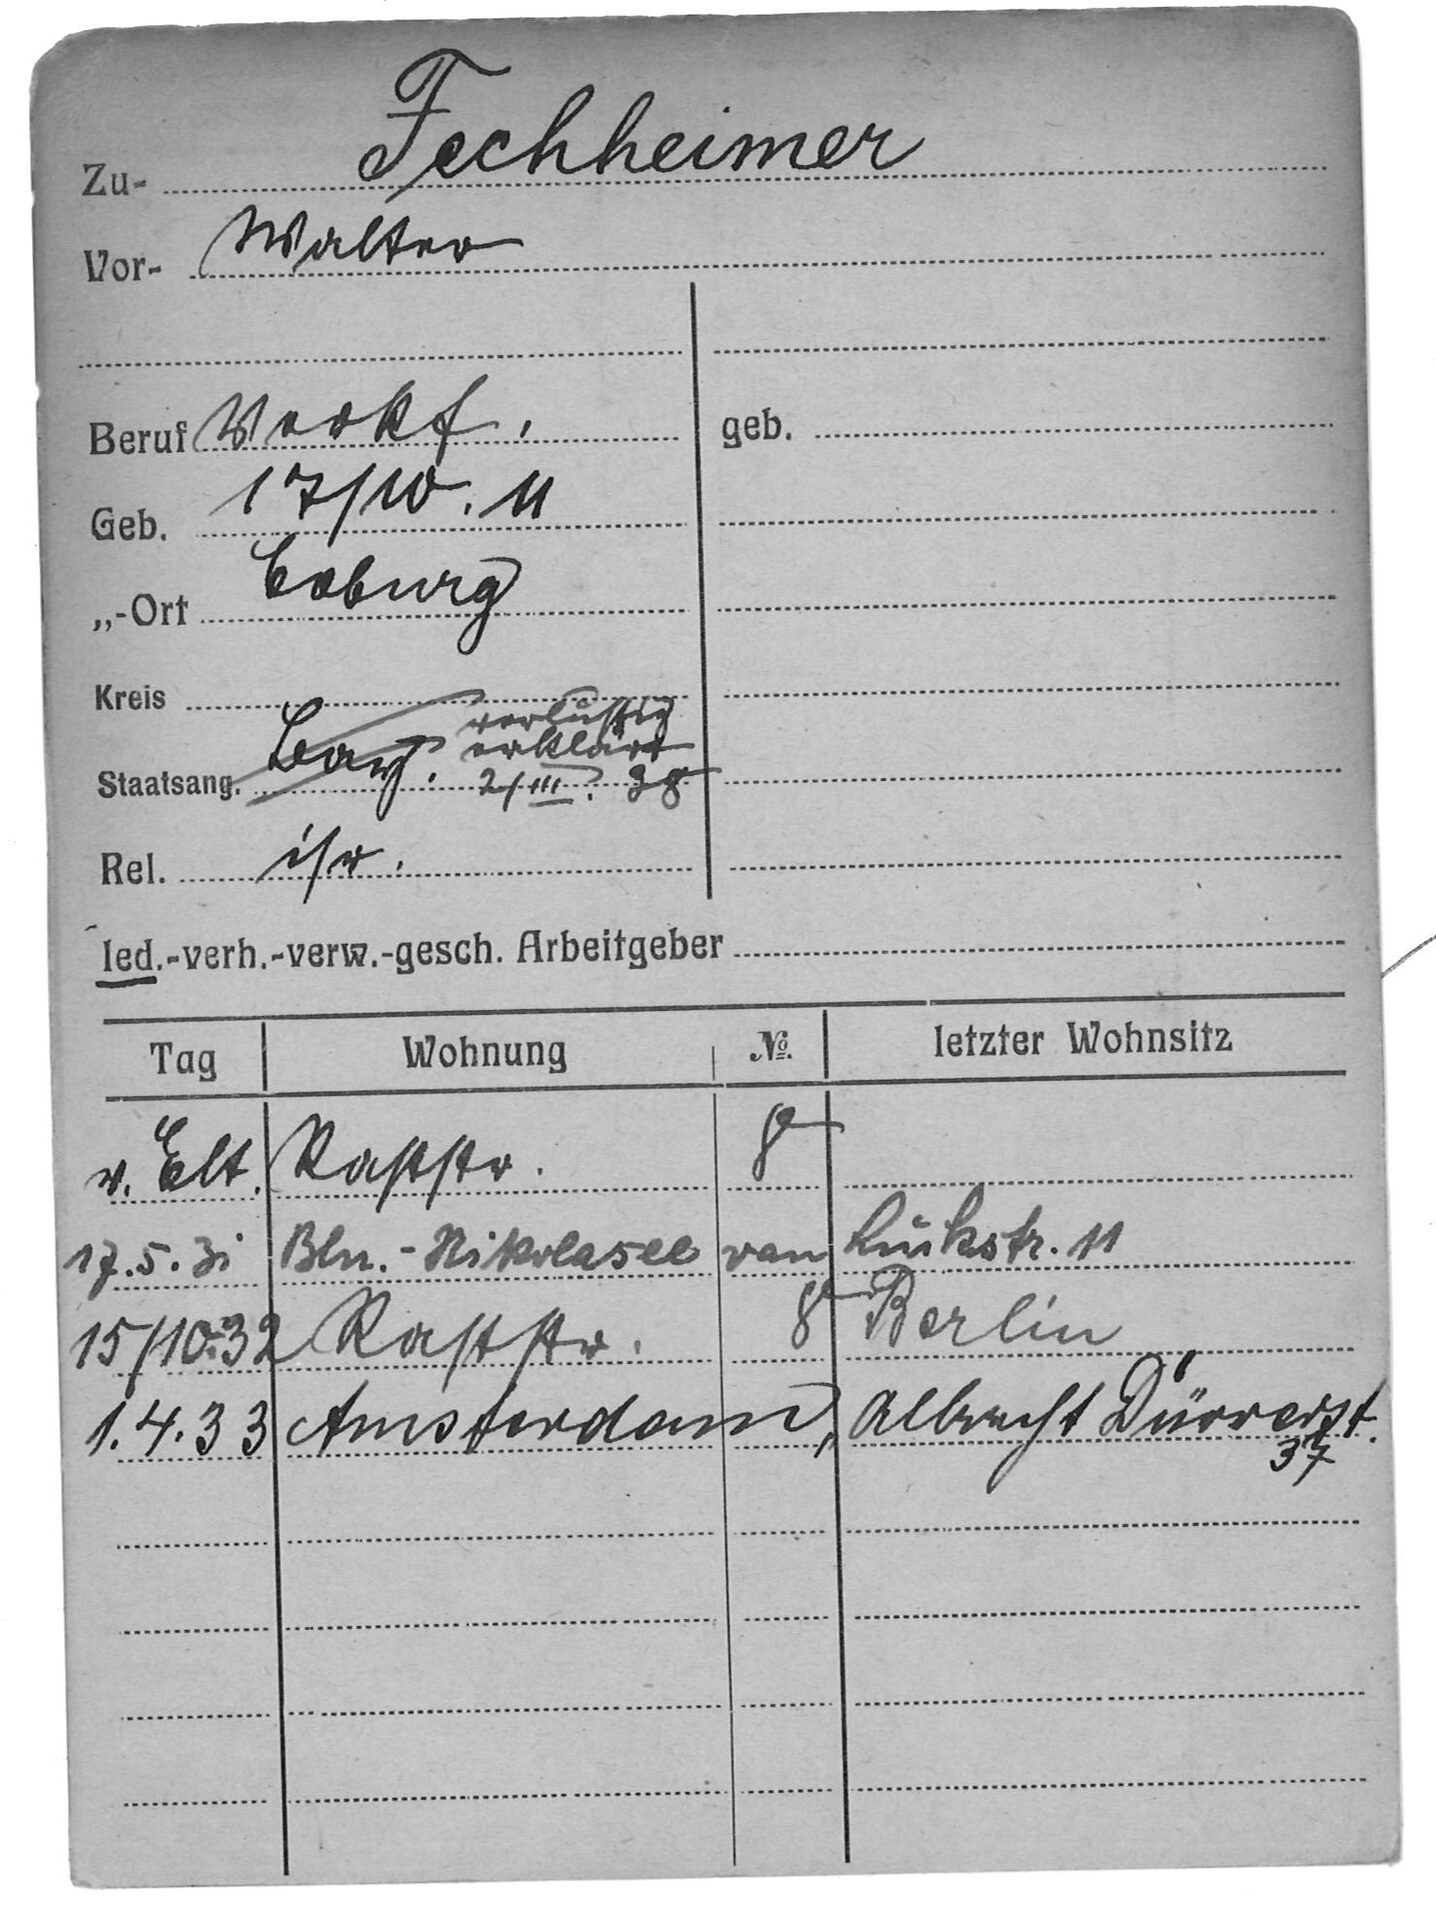 Zu- Fechheimer
Vor- Walter
Beruf Verkf.
geb.
Geb. 17/10. 11
„-Ort Coburg
Kreis
verlustig
erklärt
Staatsang. Bay. 2/III. 38
Rel. isr.
led.-verh.-verw.-gesch. Arbeitgeber
Tag Wohnung No. letzter Wohnsitz
v. Elt. Raststr. 8
17.5.31 Bln.-Nikolasee von Lückstr. 11
15/10.32 Raststr. 8 Berlin
1.4.33 Amsterdam, Albrecht Dürrerst.
37